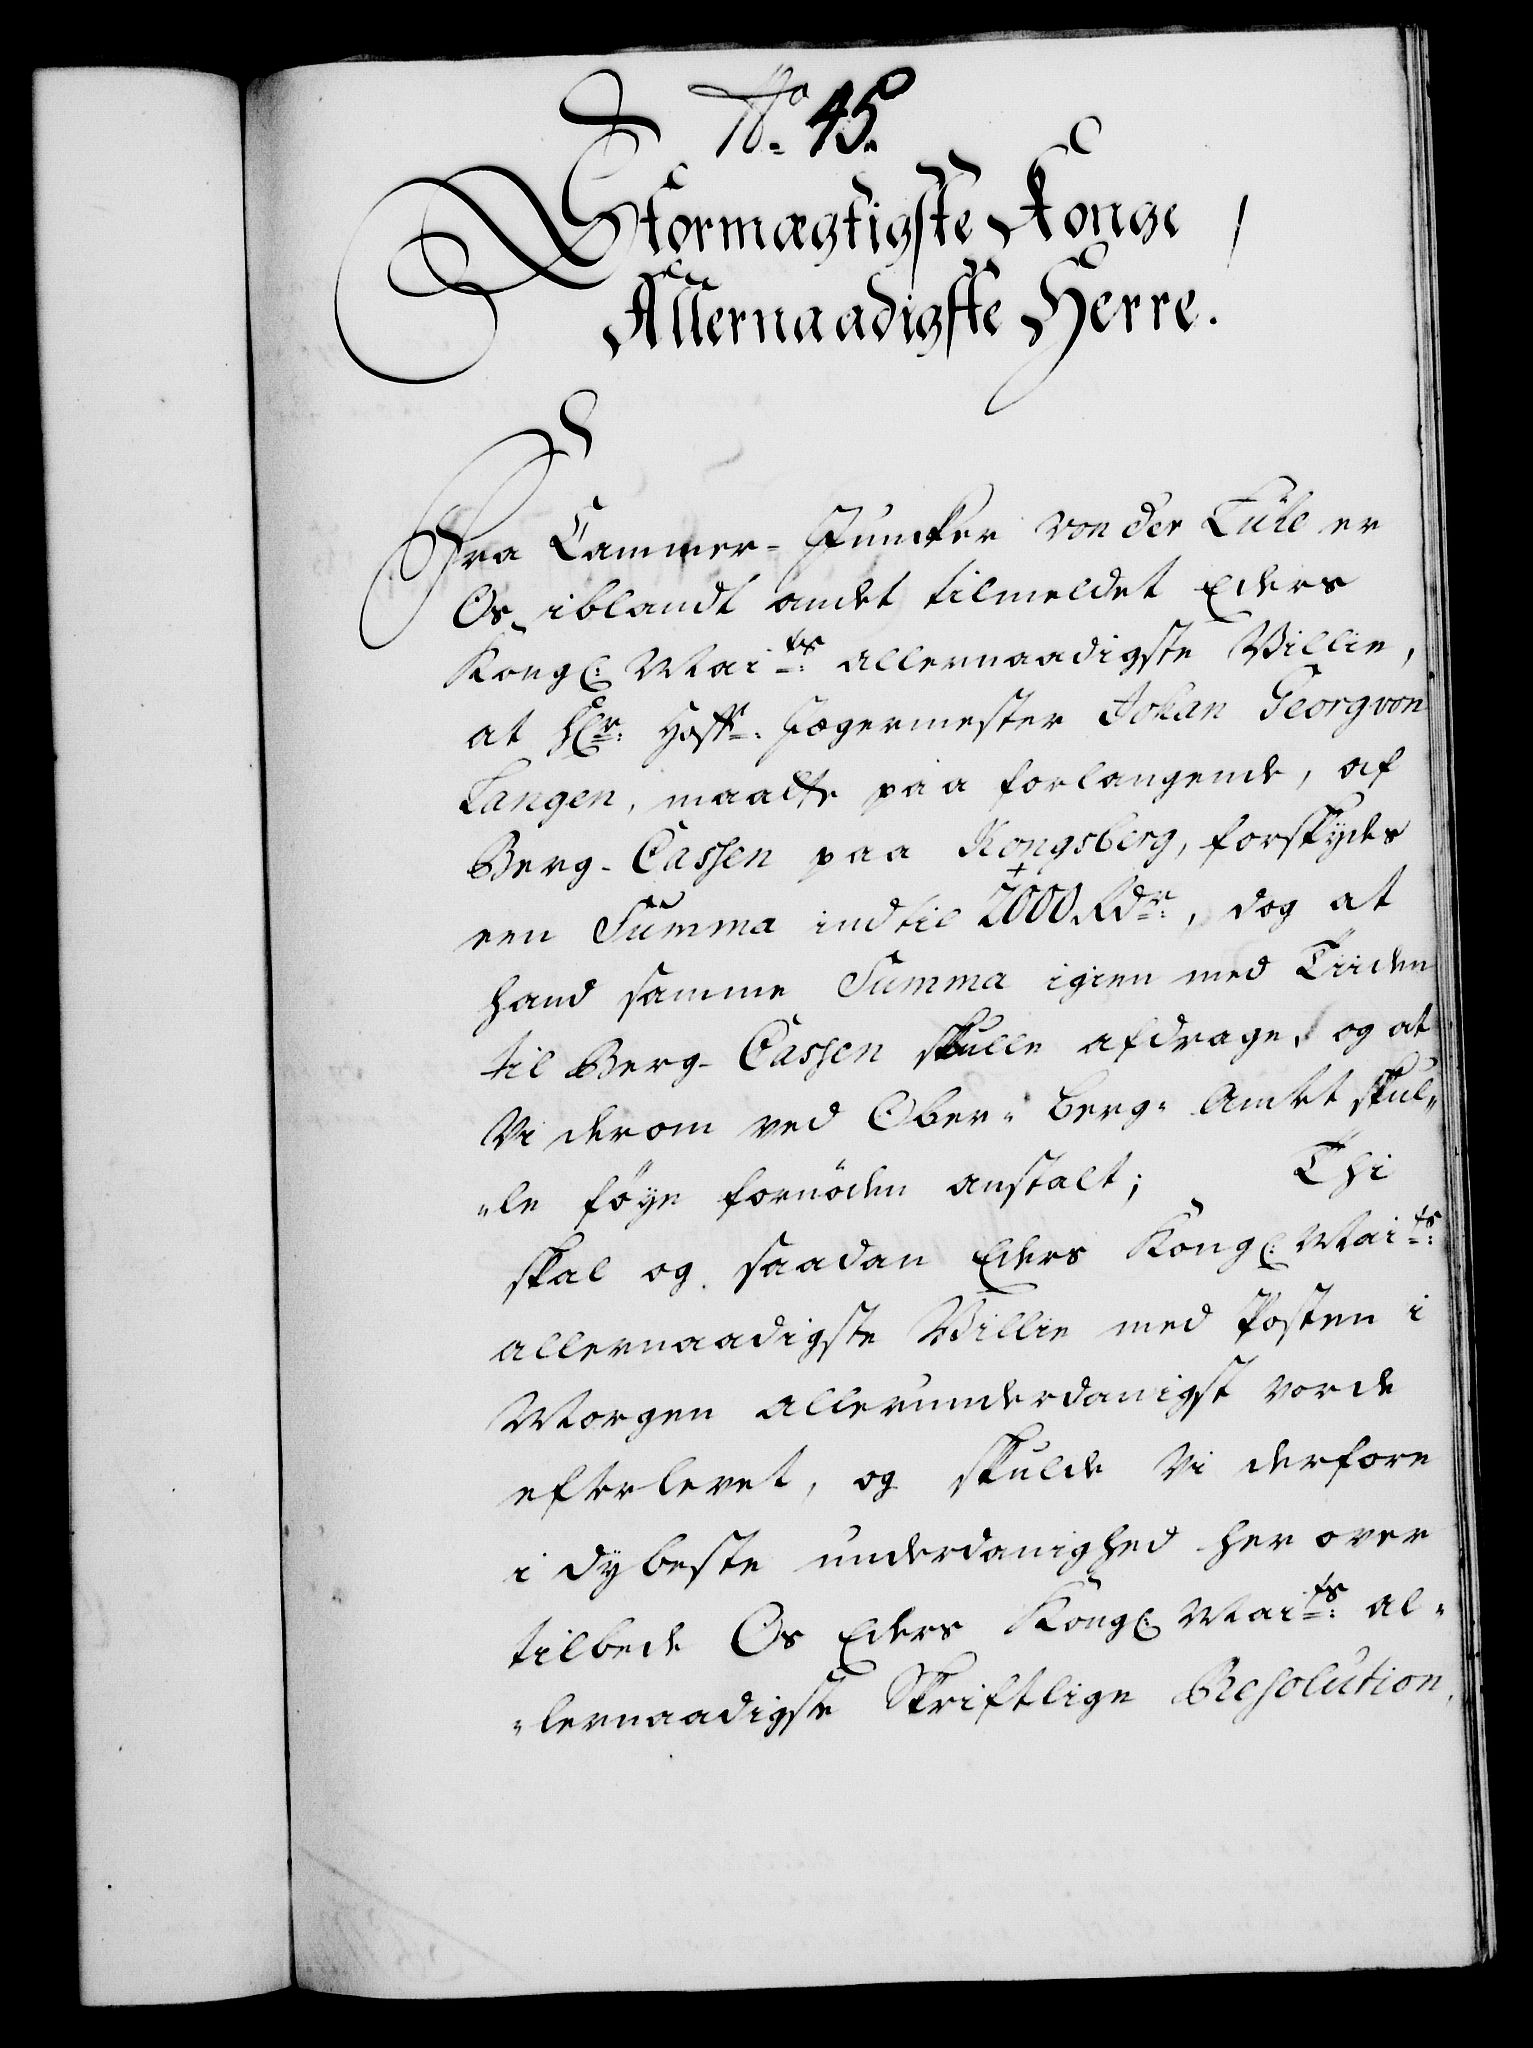 No. 45.
Stormægtigste Konge
Allernaadigste Herre.
Fra Cammer-Juncker von der Lühe er
Os iblandt andet tilmeldet Eders
Kongl: Maits allernaadigste Villie,
at Hr: Hoff-Jægermester Johan Georg von
Langen, maatte paa forlangende, af
Berg-Cassen paa Kongsberg, forskydes
een Summa indtil 2000 Rdr:, dog at
hand samme Summa igien med Tiiden
til Berg-Cassen skulle afdrage, og at
Vi derom ved Ober-Berg-Amtet skul-
-le føye fornøden anstalt; Thi
skal og saadan Eders Kongl: Maits:
allernaadigste Villie med Posten i
Morgen allerunderdanigst vorde
efterlevet, og skulde Vi derfore
i dybeste underdanighed her over
tilbede Os Eders Kongl: Maits: al-
-lernaadigste Skriftlige Resolution.